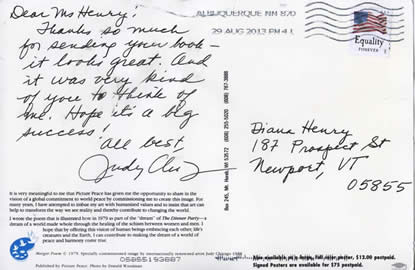 Dear Ms Henry!
Thanks so much
for sending your book –
it looks great. And
it was very kind
of you to think of
me. Hope it's a big
success!
All best
Judy
ALBUQUERQUE NM 870
29 AUG 2013 PM 4 L
Equality
FOREVER
Diana Henry
187 Prospect St
Newport, VT
05855
It is very meaningful to me that Picture Peace has given me the opportunity to share in the
vision of a global commitment to world peace by commissioning me to create this image. For
many years, I have attempted to imbue my art with humanist values and to insist that art can
help to transform the way we see reality and thereby contribute to changing the world.
I wrote the poem that is illustrated here in 1979 as part of the "dream" of The Dinner Party—a
dream of a world made whole through the healing of the schism between women and men. I
hope that by offering this vision of human beings embracing each other, life's
creatures and the Earth, I can contribute to making the dream of a world of
peace and harmony come true.
Merger Poem © 1979. Specially commissioned image by internationally renowned artist Judy Chicago 1988
Publisher: Picture Peace Photo: © Donald Woodman
05855193687
Box 245, Mt. Horeb, WI 53572 (608) 255-5020 (608) 767-3888
Also available as a large, full color poster, $12.00 postpaid.
Signed Posters are available for $75 postpaid.